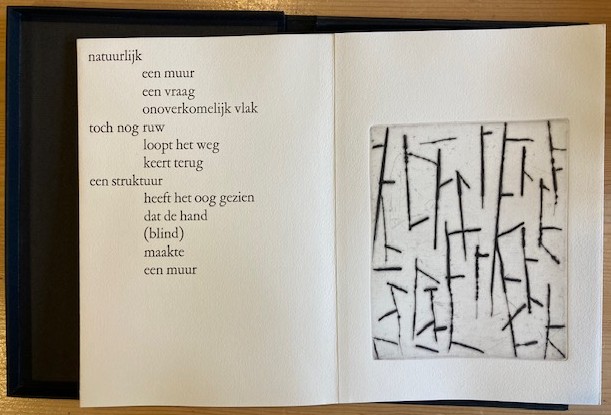 natuurlijk
een muur
een vraag
onoverkomelijk vlak
toch nog ruw
loopt het weg
keert terug
een struktuur
heeft het oog gezien
dat de hand
(blind)
maakte
een muur